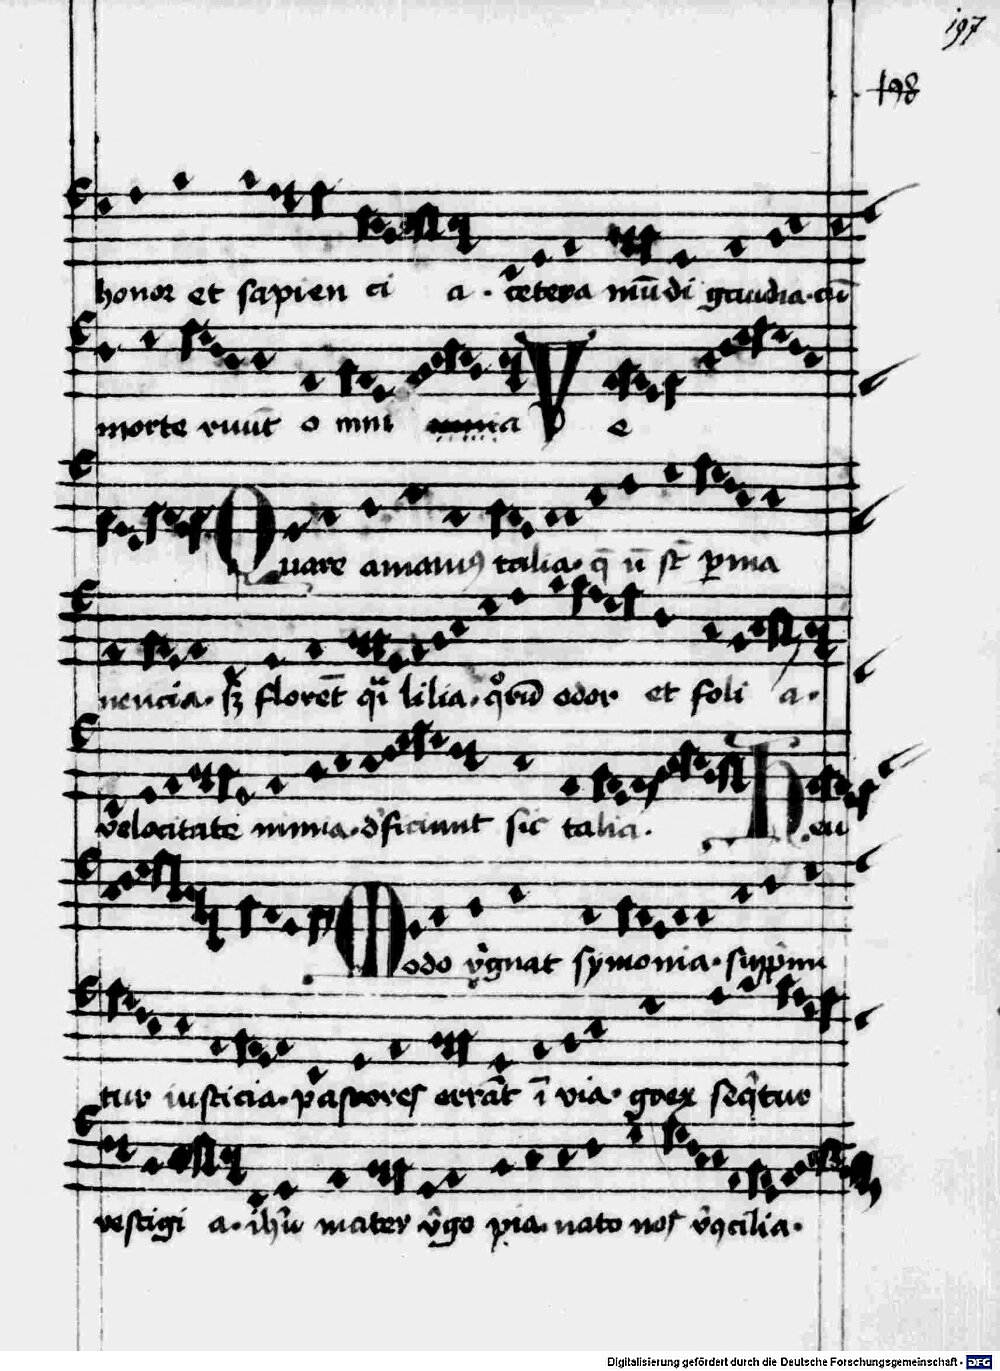 197
198
honor et sapien ci a · cetera mūdi gaudia · cū
morte ruūt o mni a V e
Quare amamꝰ talia · q̄ nō st̄ ꝑma
nencia · sꝫ florēt qͣi lilia · qͦrū odor et foli a ·
velocitate nimia · dʼficiunt sic talia · Heu
Modo regnat symonia · suppͥmi
tur iusticia · pastores errāt ī via · grex seqͥtur
vestigi a · ihū mater vͥgo pia · nato nos recōcilia ·
Digitalisierung gefördert durch die Deutsche Forschungsgemeinschaft - DFG